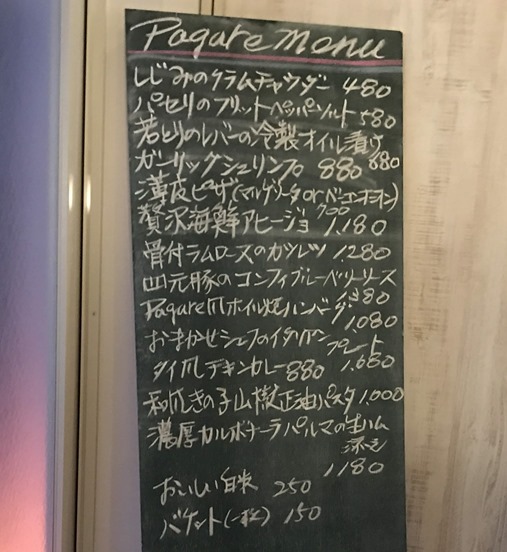 Pagare menu
しじみのクラムチャウダー 480
パセリのフリットペッパーソルト 580
若とりのレバーの冷製オイル漬け
680
ガーリックシュリンプ 880
薄皮ピザ(マルゲリータorベーコンオニオン)
900
贅沢海鮮アヒージョ 1,180
骨付ラムロースのカツレツ 1,280
山元豚のコンフィブルーベリーソース
1,380
Pagare風ホイル焼ハンバーグ
1,080
おまかせシェフのイタリアン
プレート
1,680
タイ風チキンカレー 880
和風きの子山椒正油パスタ 1,000
濃厚カルボナーラパルマの生ハム
添え
1180
おいしい白米 250
バケット(一枚) 150